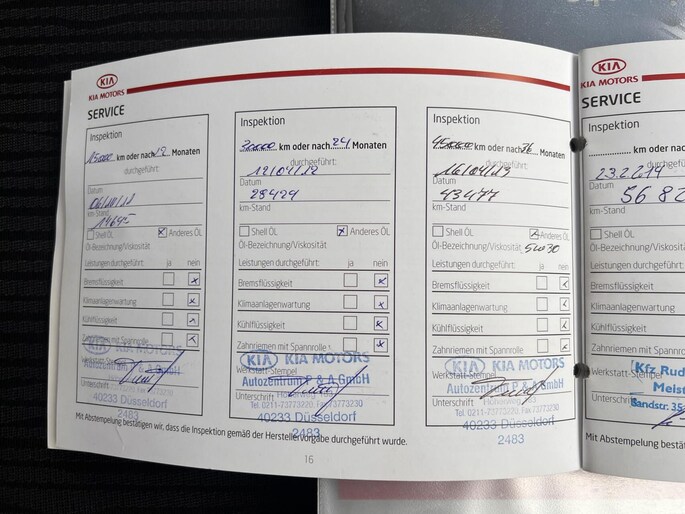 KIA
KIA MOTORS
SERVICE
Inspektion
15000 km oder nach 12 Monaten
durchgeführt:
Datum
km-Stand
14695
Shell Öl Anderes Öl
Öl-Bezeichnung/Viskosität
Leistungen durchgeführt: ja nein
Bremsflüssigkeit
Klimaanlagenwartung
Kühlflüssigkeit
Zahnriemen mit Spannrolle
KIA MOTORS
Werkstatt-Stempel
Autozentrum P & A GmbH
Unterschrift
40233 Düsseldorf
2483
Inspektion
30000 km oder nach 24 Monaten
durchgeführt:
12/04/12
Datum
29429
km-Stand
Shell Öl Anderes Öl
Öl-Bezeichnung/Viskosität
Leistungen durchgeführt: ja nein
Bremsflüssigkeit
Klimaanlagenwartung
Kühlflüssigkeit
Zahnriemen mit Spannrolle
KIA KIA MOTORS
Werkstatt-Stempel
Autozentrum P & A GmbH
Unterschrift
Tel. 0211-73773220, Fax 73773230
40233 Düsseldorf
2483
Inspektion
45000 km oder nach 36 Monaten
durchgeführt:
16/04/13
Datum
43477
km-Stand
Shell Öl Anderes Öl
Öl-Bezeichnung/Viskosität 5W30
Leistungen durchgeführt: ja nein
Bremsflüssigkeit
Klimaanlagenwartung
Kühlflüssigkeit
Zahnriemen mit Spannrolle
KIA KIA MOTORS
Werkstatt-Stempel
Autozentrum P & A GmbH
Unterschrift
Tel. 0211-73773220, Fax 73773230
40233 Düsseldorf
2483
Mit Abstempelung bestätigen wir, dass die Inspektion gemäß der Herstellervorgabe durchgeführt wurde.
16
KIA
KIA MOTORS
SERVICE
Inspektion
km oder nach
23.2.2014
Datum
5682
km-Stand
Shell Öl
Öl-Bezeichnung/Visko
Leistungen durchgef
Bremsflüssigkeit
Klimaanlagenwartun
Kühlflüssigkeit
Zahnriemen mit Spa
Kfz Rud
Werkstatt-Stempel
Meist
Sandstr. 35
Unterschrift
Mit Abstempelung be